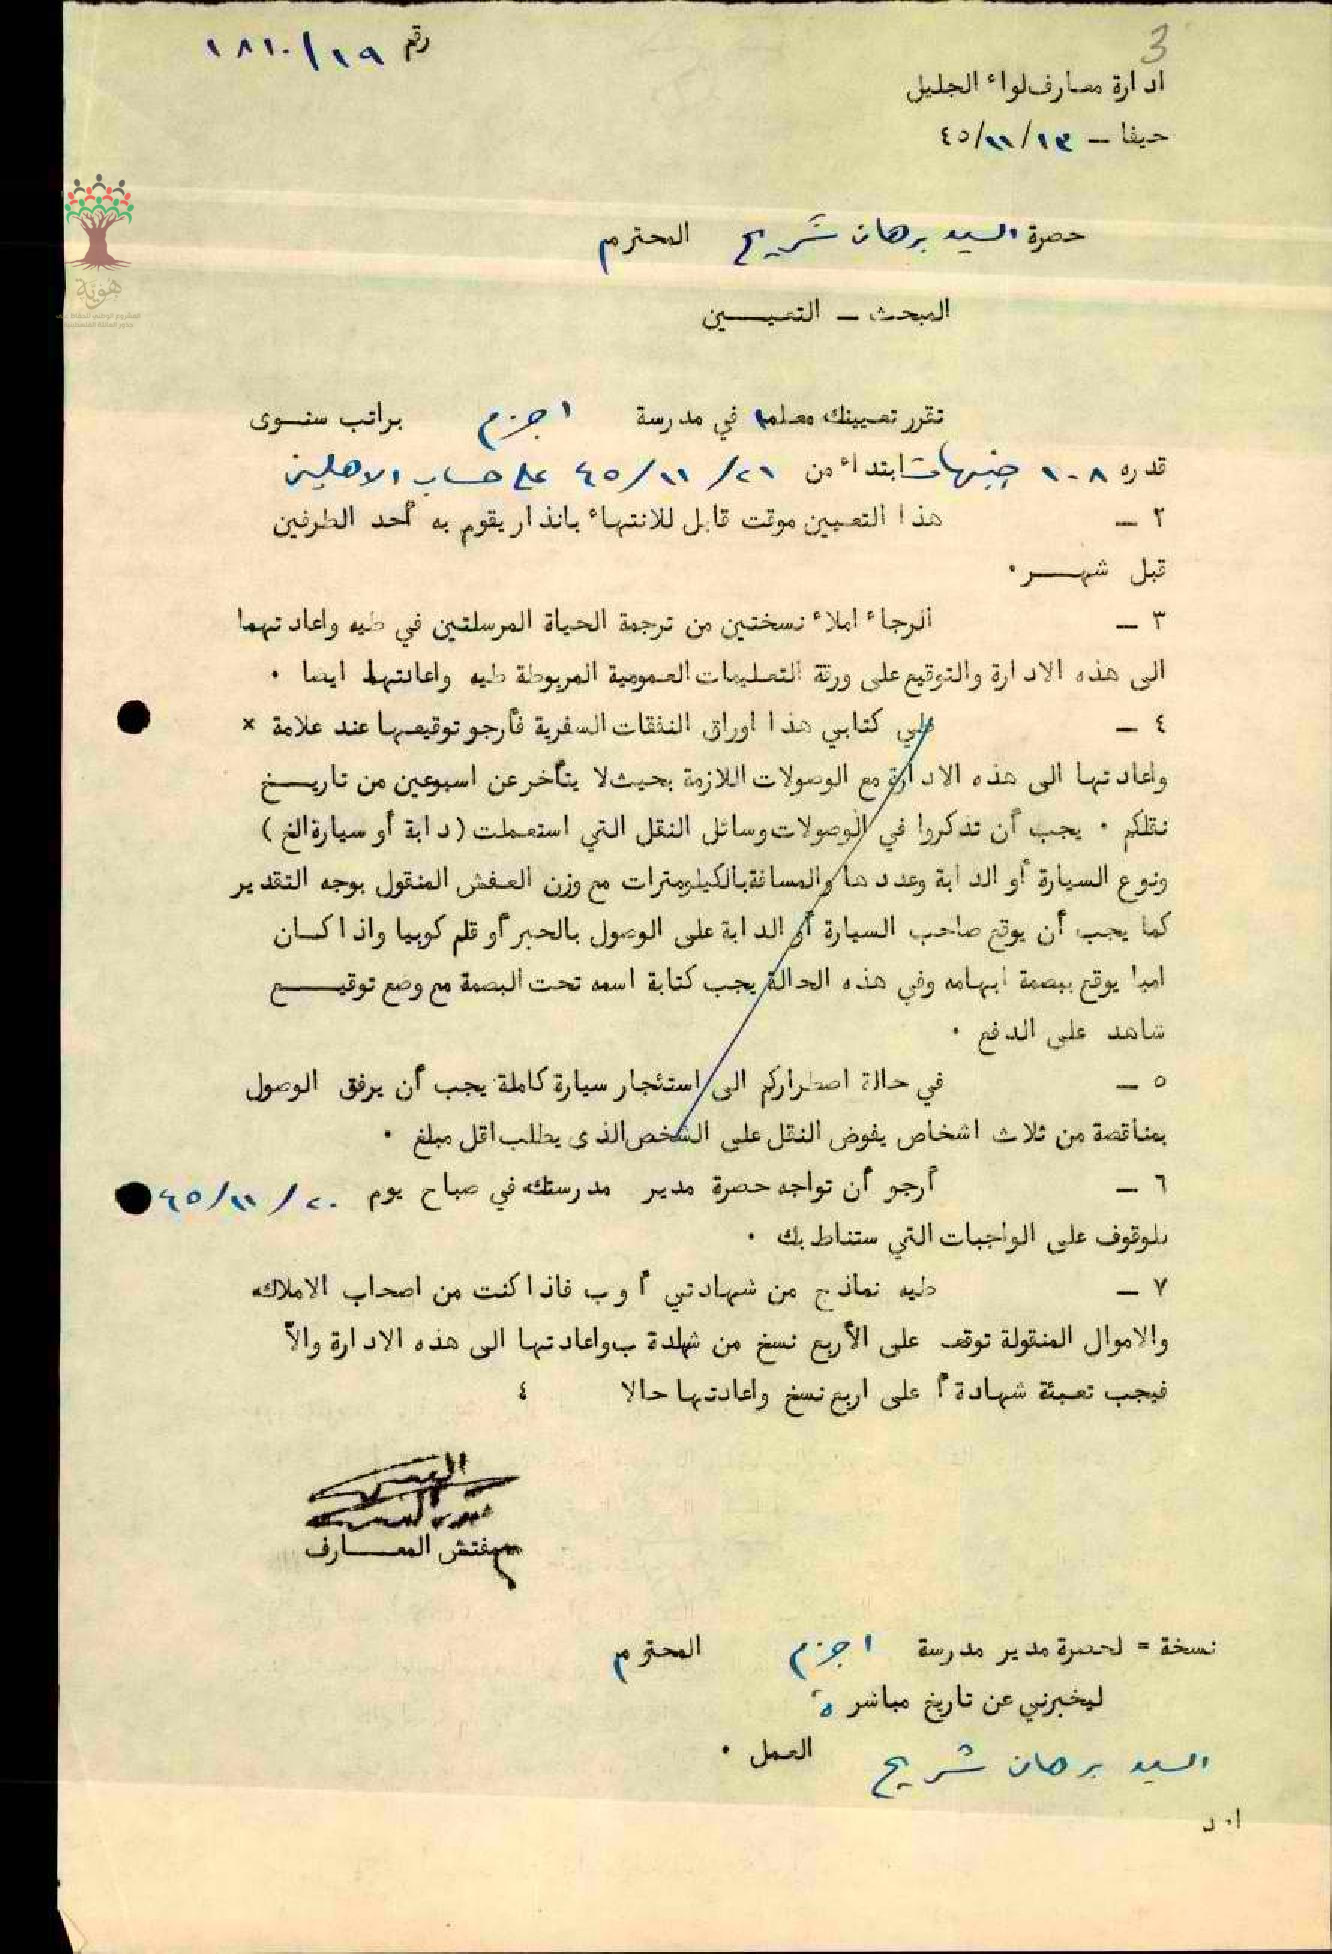 3
رقم ١٨١٠/١٩
ادارة معارف لواء الجليل
حيفا – ٤٥/١١/١٣
حضرة السيد برهان شريح المحترم
هوية
المبحث – التعيـــين
تقرر تعيينك معلما في مدرسة اجزم براتب سنوى
قدره ١٠٨ جنيهات ابتداء من ٤٥/١١/٢١ على حساب الاهلين
٢ – هذا التعيين موقت قابل للانتهاء بانذار يقوم به أحد الطرفين
قبل شهـــر .
٣ – الرجاء املاء نسختين من ترجمة الحياة المرسلتين في طيه واعادتهما
الى هذه الادارة والتوقيع على ورقة التعليمات العمومية المربوطة طيه واعادتها ايضا .
٤ – طي كتابي هذا اوراق النفقات السفرية فأرجو توقيعها عند علامة ×
واعادتها الى هذه الادارة مع الوصولات اللازمة بحيث لا يتأخر عن اسبوعين من تاريـــخ
نقلكم . يجب أن تذكروا في الوصولات وسائل النقل التي استعملت ( دابة أو سيارة الخ )
ونوع السيارة أو الدابة وعددها والمسافة بالكيلومترات مع وزن العفش المنقول بوجه التقدير
كما يجب أن يوقع صاحب السيارة أو الدابة على الوصول بالحبر أو قلم كوبيا واذا كــان
اميا يوقع ببصمة ابهامه وفي هذه الحالة يجب كتابة اسمه تحت البصمة مع وضع توقيـــع
شاهد على الدفع .
٥ – في حالة اضطراركم الى استئجار سيارة كاملة يجب أن يرفق الوصول
بمناقصة من ثلاث اشخاص يفوض النقل على الشخص الذى يطلب اقل مبلغ .
٦ – أرجو أن تواجه حضرة مدير مدرستك في صباح يوم ٤٥/١١/٢٠
للوقوف على الواجبات التي ستناط بك .
٧ – طيه نماذج من شهادتي أ و ب فاذا كنت من اصحاب الاملاك
والاموال المنقولة توقع على الأربع نسخ من شهادة ب واعادتها الى هذه الادارة والاّ
فيجب تعبئة شهادة أ على اربع نسخ واعادتها حالا ٤
مفتش المعـــارف
نسخة = لحضرة مدير مدرسة اجزم المحترم
ليخبرني عن تاريخ مباشرة
السيد برهان شريح العمل .
ا . د